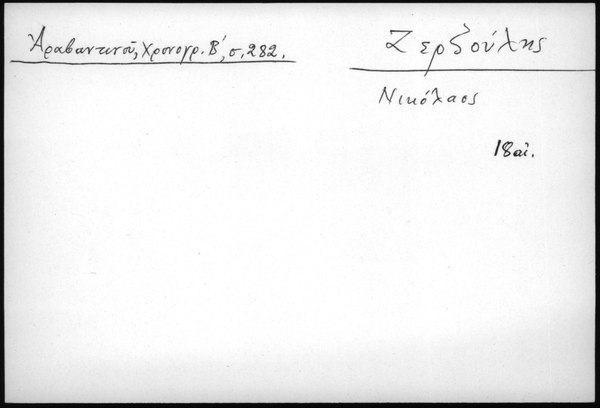 Ἀραβαντινοῦ, Χρονογρ. Β΄, σ. 282.
Ζερζούλης
Νικόλαος
18 αἰ.